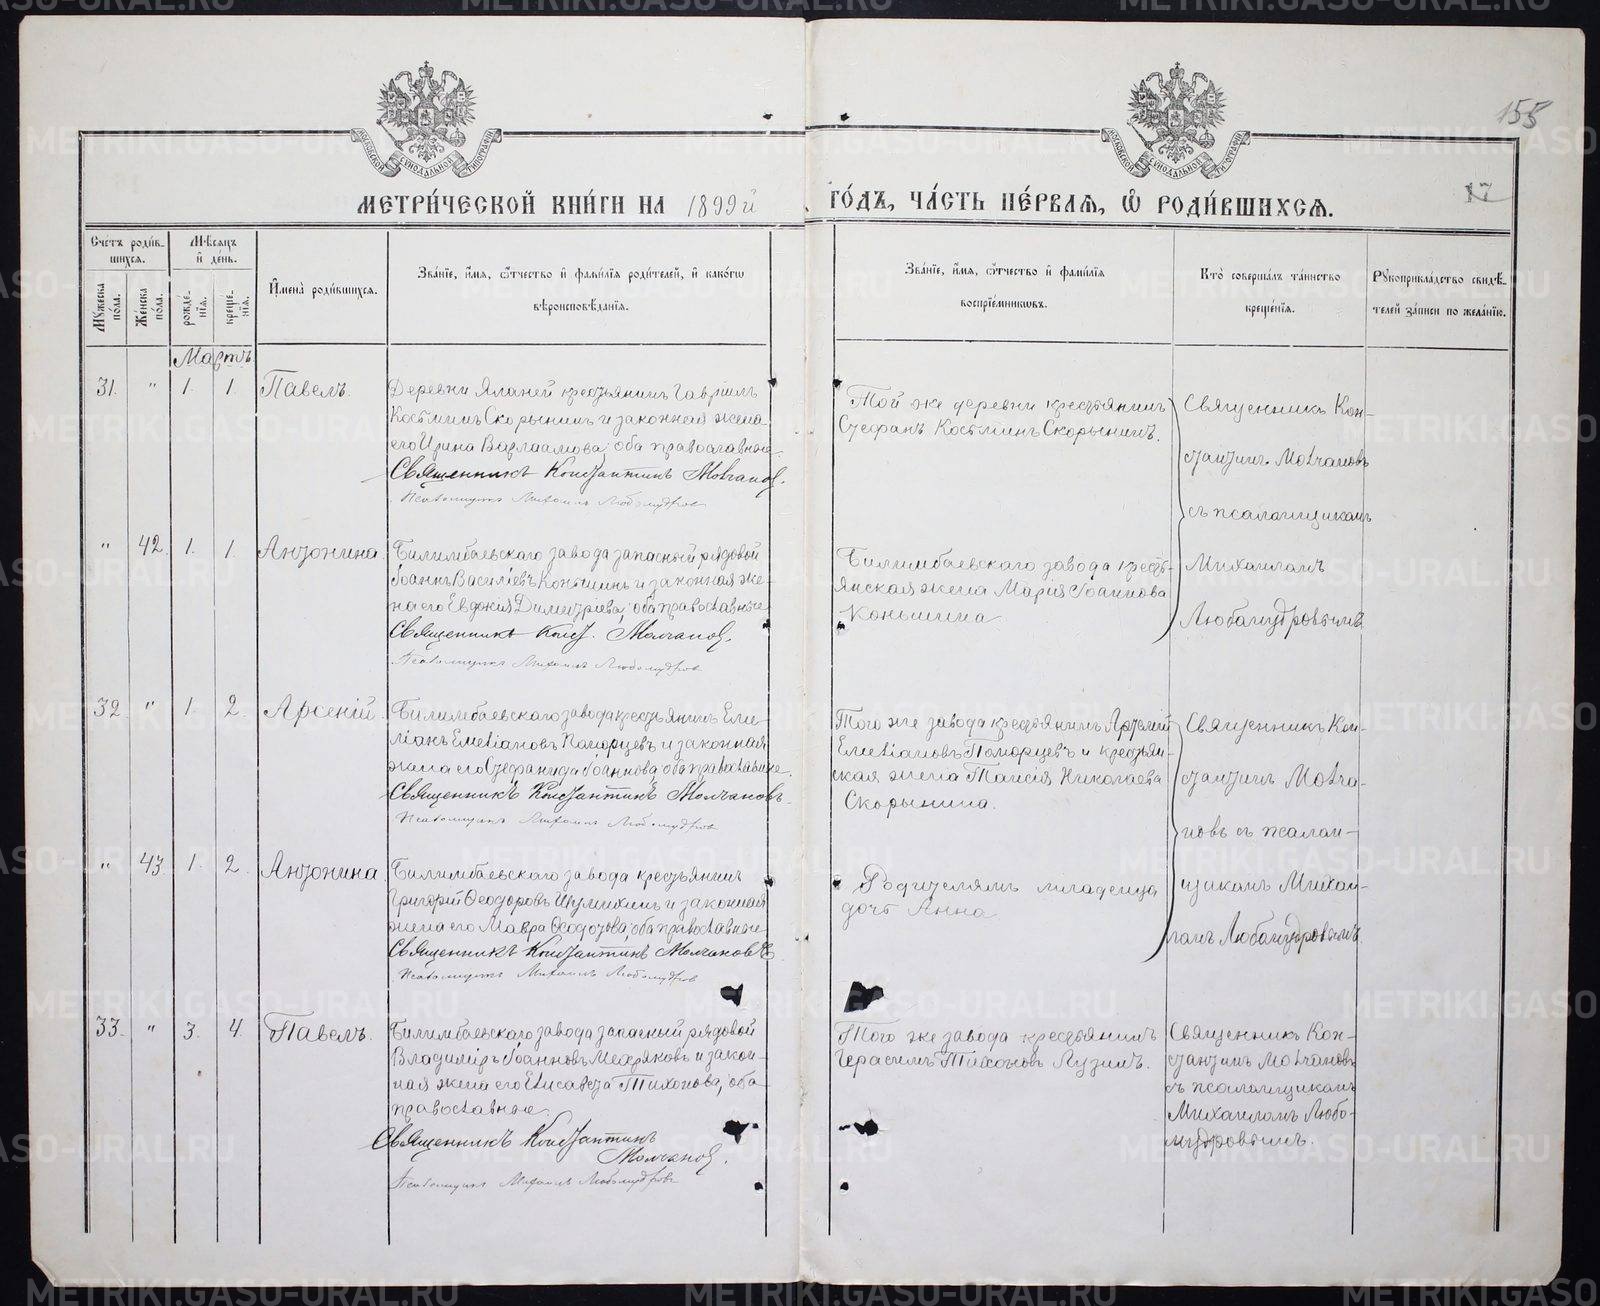 155
17
МЕТРИ́ЧЕСКОЙ КНИ́ГИ НА 1899й ГО́ДЪ, ЧА́СТЬ ПЕ́РВАЯ, Ѽ РОДИ́ВШИХСѦ.
Сче́тъ роди́в-
шихсѧ.
Мѣ́сяцъ
и҆ де́нь.
И҆мена̀ роди́вшихсѧ.
Зва́нїе, и҆́мѧ, ѻ҆́тчество и҆ фами́лїѧ роди́телей, и҆ како́гѡ
вѣроисповѣ́данїѧ.
Зва́нїе, и҆́мѧ, ѻ҆́тчество и҆ фами́лїѧ
воспрїе́мникѡвъ.
Кто̀ соверша́лъ та́инство
креще́нїѧ.
Рꙋкоприкла́дство свидѣ́-
телей за́писи по жела́нїю.
Мꙋ́жеска
по́ла.
Же́нска
по́ла.
рожде́-
нїѧ.
креще́-
нїѧ.
Мартъ
31. " 1. 1. Павелъ.
Деревни Яланей крестьянинъ Гавриилъ
Костминъ Скорынинъ и законная жена
его Ирина Варлаамова, оба православные
Священникъ Константинъ Молчановъ.
Псаломщикъ Михаилъ Любомудровъ
Той же деревни крестьянинъ
Стефанъ Костминъ Скорынинъ.
Священникъ Кон-
стантинъ Молчановъ
съ псаломщикомъ
Михаиломъ
Любомудровымъ.
" 42. 1. 1. Антонина.
Билимбаевскаго завода запасный рядовой
Іоаннъ Васильевъ Коньшинъ и законная же-
на его Евдокія Димитріева, оба православные
Священникъ Конст. Молчановъ.
Псаломщикъ Михаилъ Любомудровъ
Билимбаевскаго завода кресть-
янская жена Марія Іоаннова
Коньшина
32. " 1. 2. Арсеній.
Билимбаевскаго завода крестьянинъ Еми-
ліанъ Емеліановъ Поморцевъ и законная
жена его Стефанида Іоаннова, оба православные.
Священникъ Константинъ Молчановъ.
Псаломщикъ Михаилъ Любомудровъ
Того же завода крестьянинъ
Емеліановъ Поморцевъ и крестьян-
ская жена Таисія Николаева
Скорынина.
Священникъ Кон-
стантинъ Молча-
новъ съ псалом-
щикомъ Михаи-
ломъ Любомудровымъ.
" 43. 1. 2. Антонина
Билимбаевскаго завода крестьянинъ
Григорій Ѳеодоровъ Шумихинъ и законная
жена его Мавра Ѳеодотова, оба православные
Священникъ Константинъ Молчановъ
Псаломщикъ Михаилъ Любомудровъ
Родителямъ младенца
дочь Анна
33. " 3. 4. Павелъ.
Билимбаевскаго завода запасный рядовой
Владиміръ Іоанновъ Мехряковъ и закон-
ная жена его Елисавета Тихонова, оба
православные.
Священникъ Константинъ
Молчановъ.
Псаломщикъ Михаилъ Любомудровъ
Того же завода крестьянинъ
Герасимъ Тихоновъ Лузинъ.
Священникъ Кон-
стантинъ Молчановъ
съ псаломщикомъ
Михаиломъ Любо-
мудровымъ.